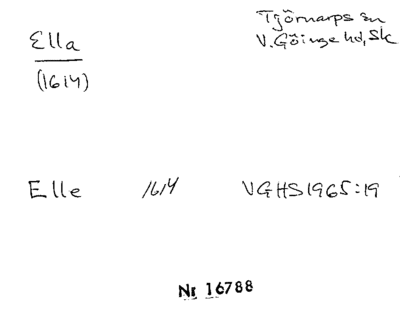 Ella
(1614)
Tjörnarps sn
V. Göinge hd, Sk
Elle 1614 VGHS 1965:19
Nr 16788